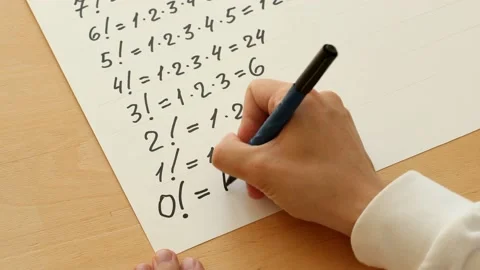 7!
6! = 1·2·3·4
5! = 1·2·3·4·5 = 12
4! = 1·2·3·4 = 24
3! = 1·2·3 = 6
2! = 1·2
1! =
0! =